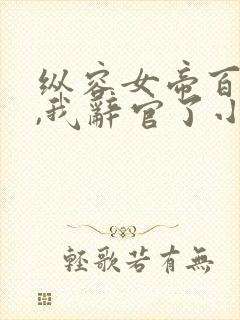 纵容女帝百
,我辞官了小
轻歌若有无